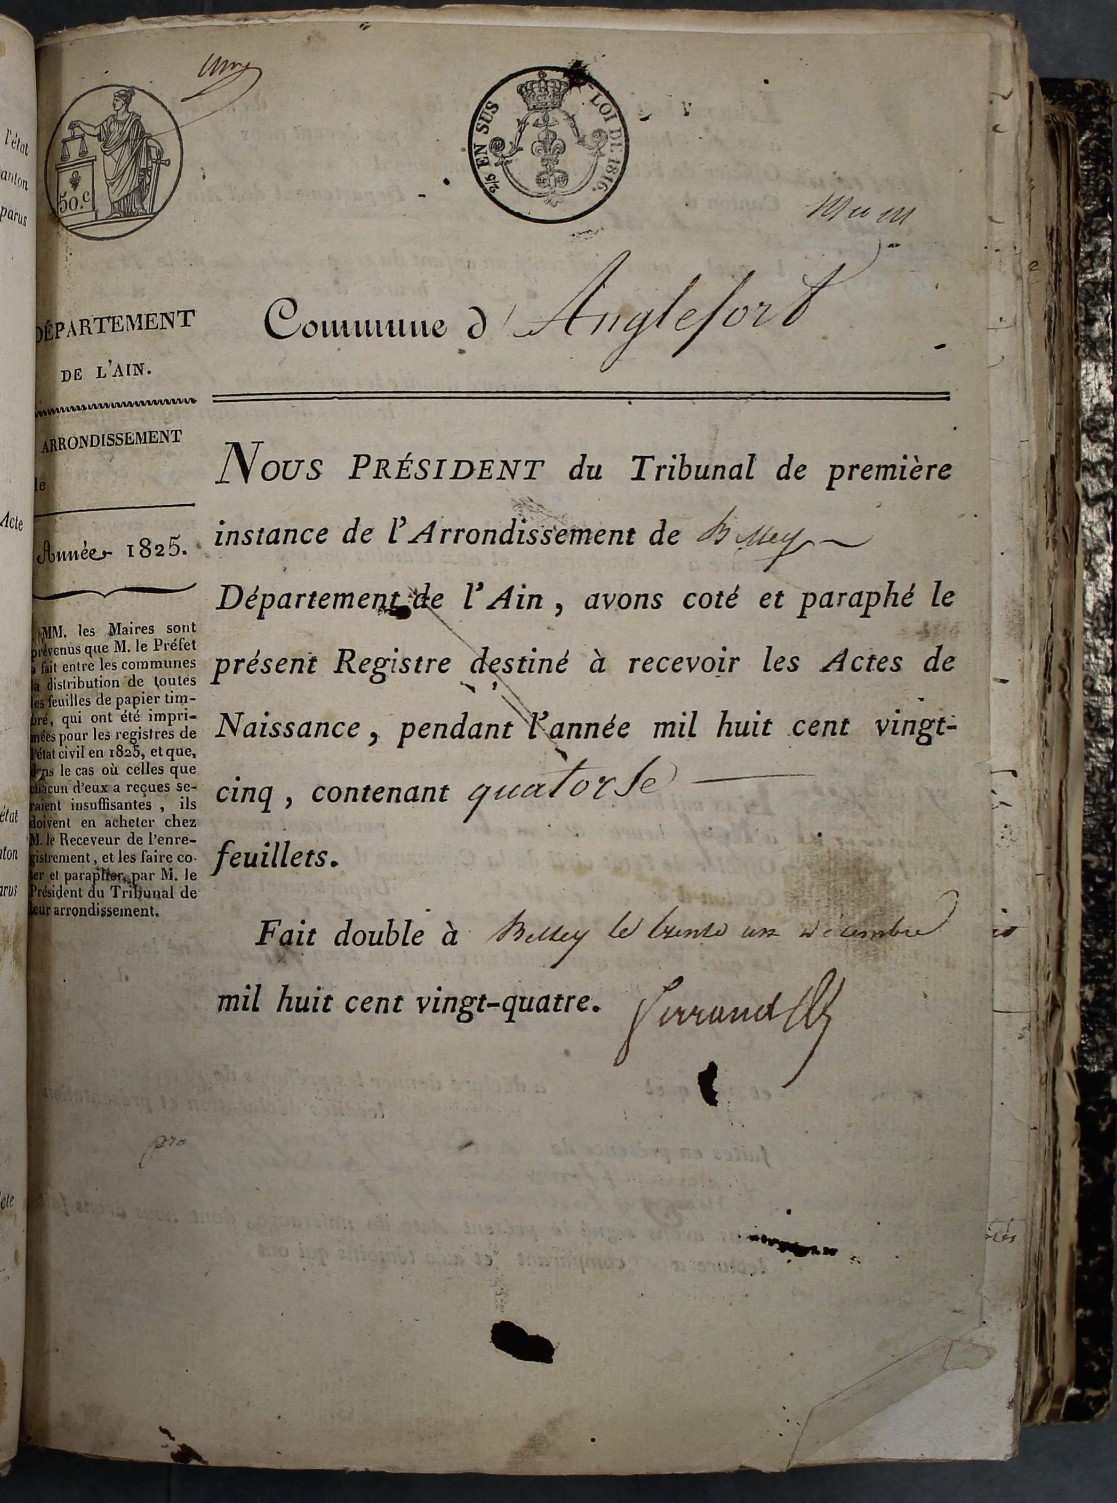 50.c
2/5 EN SUS
LOI DE 1816.
Commune d'Anglefort
DÉPARTEMENT
DE L'AIN.
ARRONDISSEMENT
de
Année 1825.
MM. les Maires sont
prévenus que M. le Préfet
a fait entre les communes
la distribution de toutes
les feuilles de papier tim-
bré, qui ont été impri-
mées pour les registres de
l'état civil en 1825, et que,
dans le cas où celles que
chacun d'eux a reçues se-
raient insuffisantes, ils
doivent en acheter chez
M. le Receveur de l'enre-
gistrement, et les faire co-
ter et parapher par M. le
Président du Tribunal de
leur arrondissement.
NOUS PRÉSIDENT du Tribunal de première
instance de l'Arrondissement de Belley
Département de l'Ain, avons coté et paraphé le
présent Registre destiné à recevoir les Actes de
Naissance, pendant l'année mil huit cent vingt-
cinq, contenant quatorse
feuillets.
Fait double à Belley le trente un décembre
mil huit cent vingt-quatre.
l'état
canton
parus
Acte
état
nton
arus